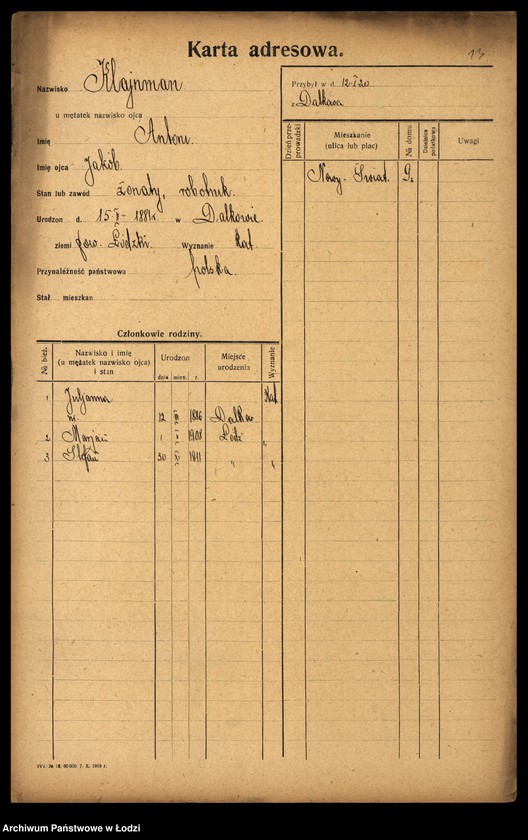 13
Karta adresowa.
Nazwisko Klajnman
u mężatek nazwisko ojca
Imię Antoni.
Imię ojca Jakób.
Stan lub zawód żonaty, robotnik.
Urodzon d. 15 1881 r w Dalkowie
ziemi pow. Łódzki Wyznanie kat.
Przynależność państwowa polska.
Stał. mieszkan
Przybył w d. 12-I-20
z Dalkowa
Dzień przeprowadzki
Mieszkanie (ulica lub plac)
№ domu
Dzielnica podatkowa
Uwagi
Nowy-Świat. 9.
Członkowie rodziny.
№ bież.
Nazwisko i imię (u mężatek nazwisko ojca) i stan
Urodzon
dnia mies. r.
Miejsce urodzenia
Wyznanie
1 Juljanna Kat
12 1886 Dalków
2 Marjan 1 1908 Łódź "
3 Stefan 30 1911 " "
7. X. 1919 r.
Archiwum Państwowe w Łodzi